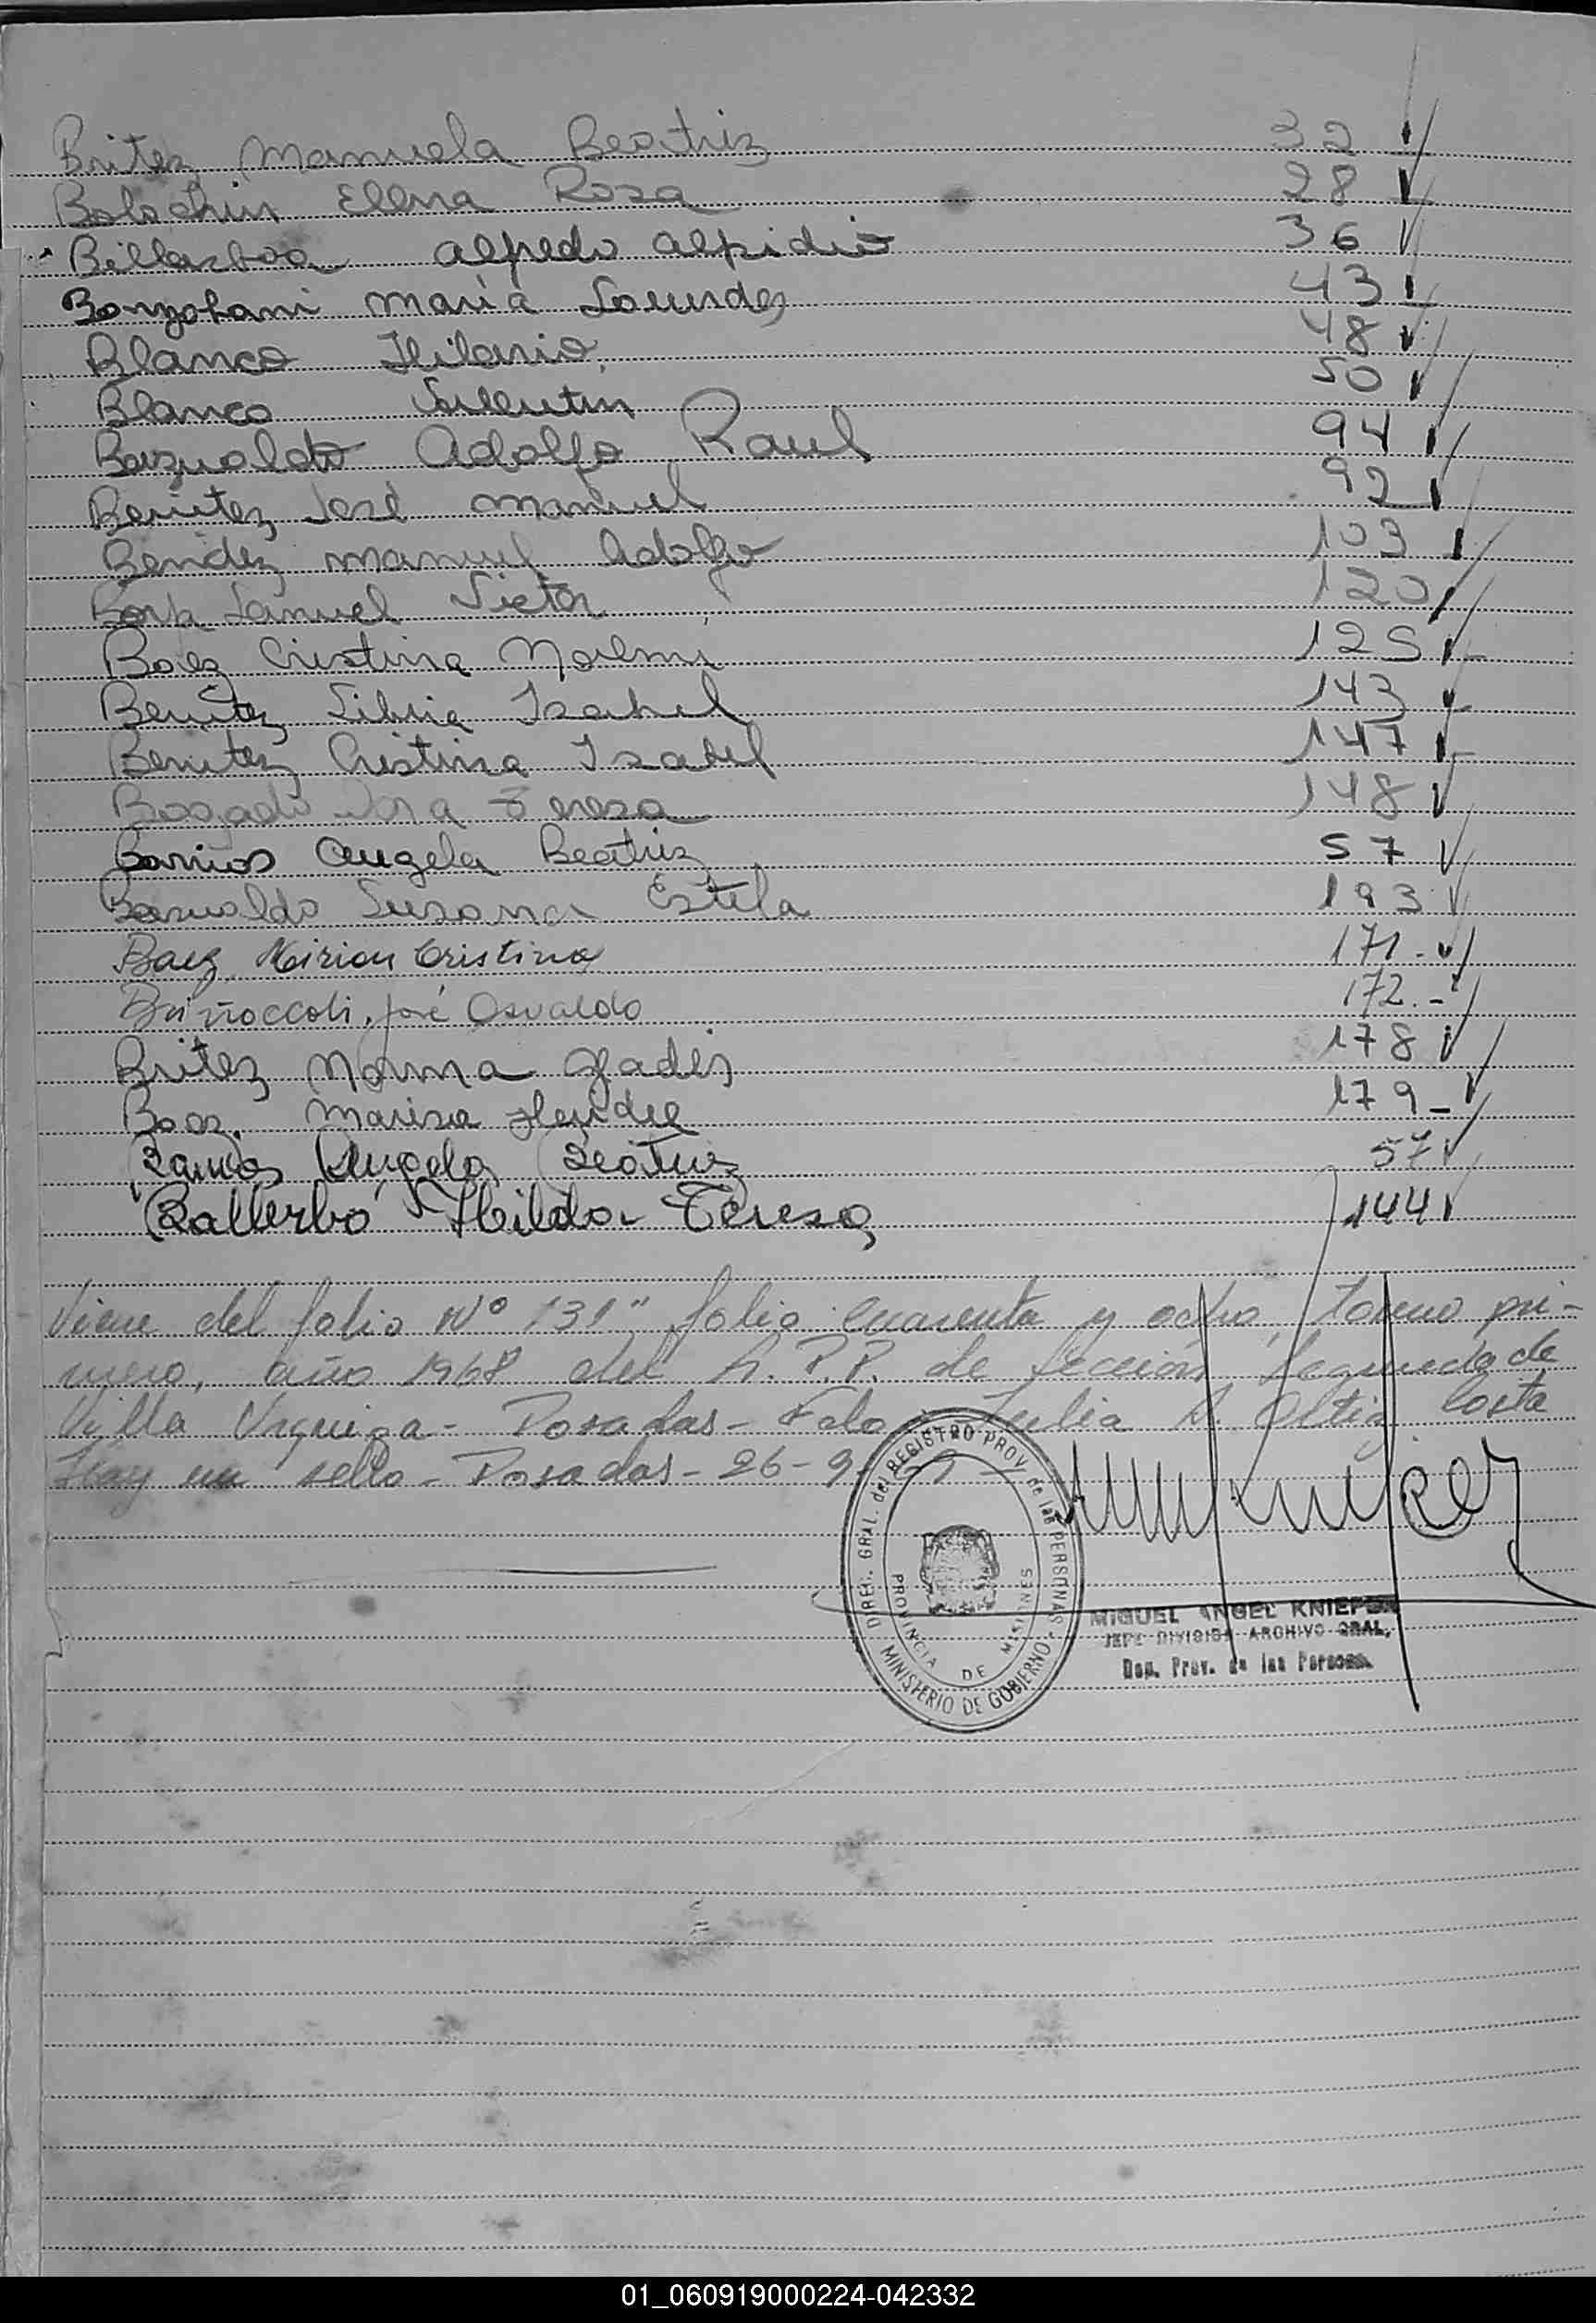 Britez Manuela Beatriz 32
Elena Rosa 28
Alfredo Alpidio 36
Maria Lourdes 43
Blanco Hilario 48
Blanco 50
Basualdo Adolfo Raul 94
Benitez José Manuel 92
Manuel Adolfo 103
Samuel Victor 120
Baez Cristina Noemi 125
Benitez Libria Isabel 143
Benitez Cristina Isabel 147
Bogado Teresa 148
Barrios Angela Beatriz 57
Basualdo Susana Estela 193
Baez Mirian Cristina 171.-
José Osvaldo 172.-
Britez Norma Gladis 178
Baez Marisa 179-
Barrios Angela Beatriz 57
Hilda Teresa 144
Viene del folio Nº 131" folio cuarenta y ocho, tomo pri-
mero, año 1968 del R.P.P. de Sección Segunda de
Villa Urquiza - Posadas - Fdo: Julia A. Costa
Hay un sello - Posadas - 26-9-
DIREC. GRAL. del REGISTRO PROV. de las PERSONAS
PROVINCIA DE MISIONES
MINISTERIO DE GOBIERNO
MIGUEL ANGEL KNIEPER
JEFE DIVISION ARCHIVO GRAL.
Prov. de las Personas
01_060919000224-042332